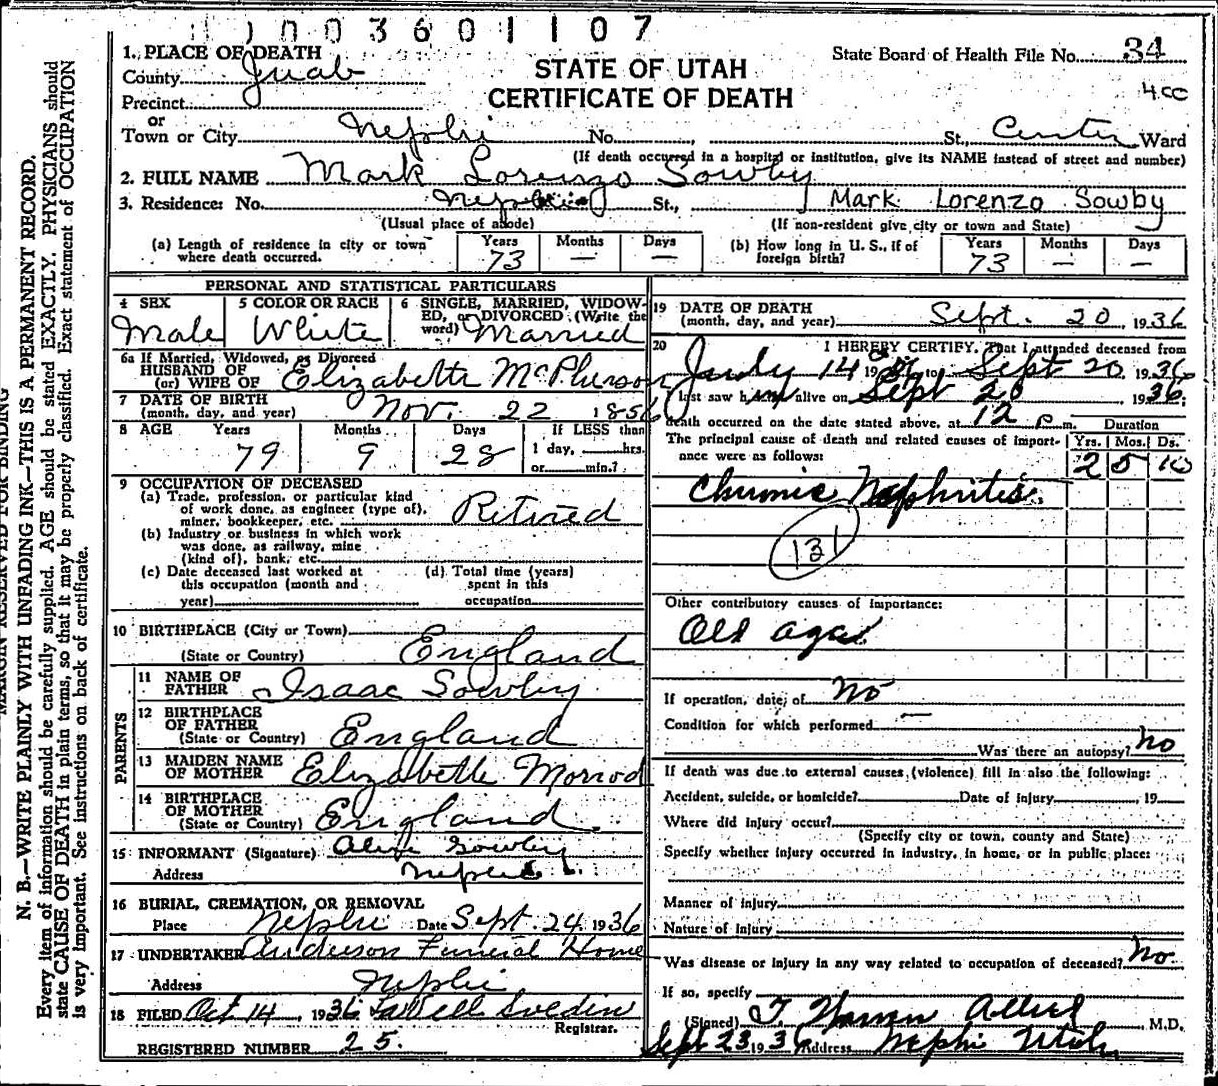 1003601107
1. PLACE OF DEATH
County Juab
State Board of Health File No. 34
STATE OF UTAH
CERTIFICATE OF DEATH
Precinct
or
Town or City Nephi No. St., Center Ward
(If death occurred in a hospital or institution, give its NAME instead of street and number)
2. FULL NAME Mark Lorenzo Sowby
3. Residence: No. Nephi St., Mark Lorenzo Sowby
(Usual place of abode) (If non-resident give city or town and State)
(a) Length of residence in city or town where death occurred. Years 73 Months — Days —
(b) How long in U. S., if of foreign birth? Years 73 Months — Days —
PERSONAL AND STATISTICAL PARTICULARS
4 SEX Male
5 COLOR OR RACE White
6 SINGLE, MARRIED, WIDOWED, or DIVORCED (Write the word) Married
6a If Married, Widowed, or Divorced
HUSBAND OF
(or) WIFE OF Elizabeth McPherson
7 DATE OF BIRTH
(month, day, and year) Nov. 22 1856
8 AGE Years 79 Months 9 Days 28 If LESS than 1 day, hrs. or min.?
9 OCCUPATION OF DECEASED
(a) Trade, profession, or particular kind
of work done, as engineer (type of),
miner, bookkeeper, etc. Retired
(b) Industry or business in which work
was done, as railway, mine
(kind of), bank, etc.
(c) Date deceased last worked at
this occupation (month and
year)
(d) Total time (years)
spent in this
occupation
10 BIRTHPLACE (City or Town)
(State or Country) England
PARENTS
11 NAME OF
FATHER Isaac Sowby
12 BIRTHPLACE
OF FATHER
(State or Country) England
13 MAIDEN NAME
OF MOTHER Elizabeth Morrod
14 BIRTHPLACE
OF MOTHER
(State or Country) England
15 INFORMANT (Signature) Sowby
Address Nephi
16 BURIAL, CREMATION, OR REMOVAL
Place Nephi Date Sept. 24 1936
17 UNDERTAKER Anderson Funeral Home
Address Nephi
18 FILED Oct 14, 1936
Registrar.
REGISTERED NUMBER 25.
19 DATE OF DEATH
(month, day, and year) Sept. 20, 1936
20 I HEREBY CERTIFY, That I attended deceased from
14 19 to Sept 20, 1936
I last saw him alive on Sept 20, 1936;
death occurred on the date stated above, at 12 P. m.
Duration
The principal cause of death and related causes of importance were as follows: Yrs. Mos. Ds.
2 5 10
Chronic Nephritis
131
Other contributory causes of importance:
Old age
If operation, date of No
Condition for which performed —
Was there an autopsy? No
If death was due to external causes (violence) fill in also the following:
Accident, suicide, or homicide? Date of injury , 19
Where did injury occur?
(Specify city or town, county and State)
Specify whether injury occurred in industry, in home, or in public place:
Manner of injury
Nature of injury
Was disease or injury in any way related to occupation of deceased? No
If so, specify
(Signed) M.D.
Sept 23 1936 Address Nephi Utah
MARGIN RESERVED FOR BINDING
N. B.—WRITE PLAINLY WITH UNFADING INK—THIS IS A PERMANENT RECORD.
Every item of information should be carefully supplied. AGE should be stated EXACTLY. PHYSICIANS should
state CAUSE OF DEATH in plain terms, so that it may be properly classified. Exact statement of OCCUPATION
is very important. See instructions on back of certificate.